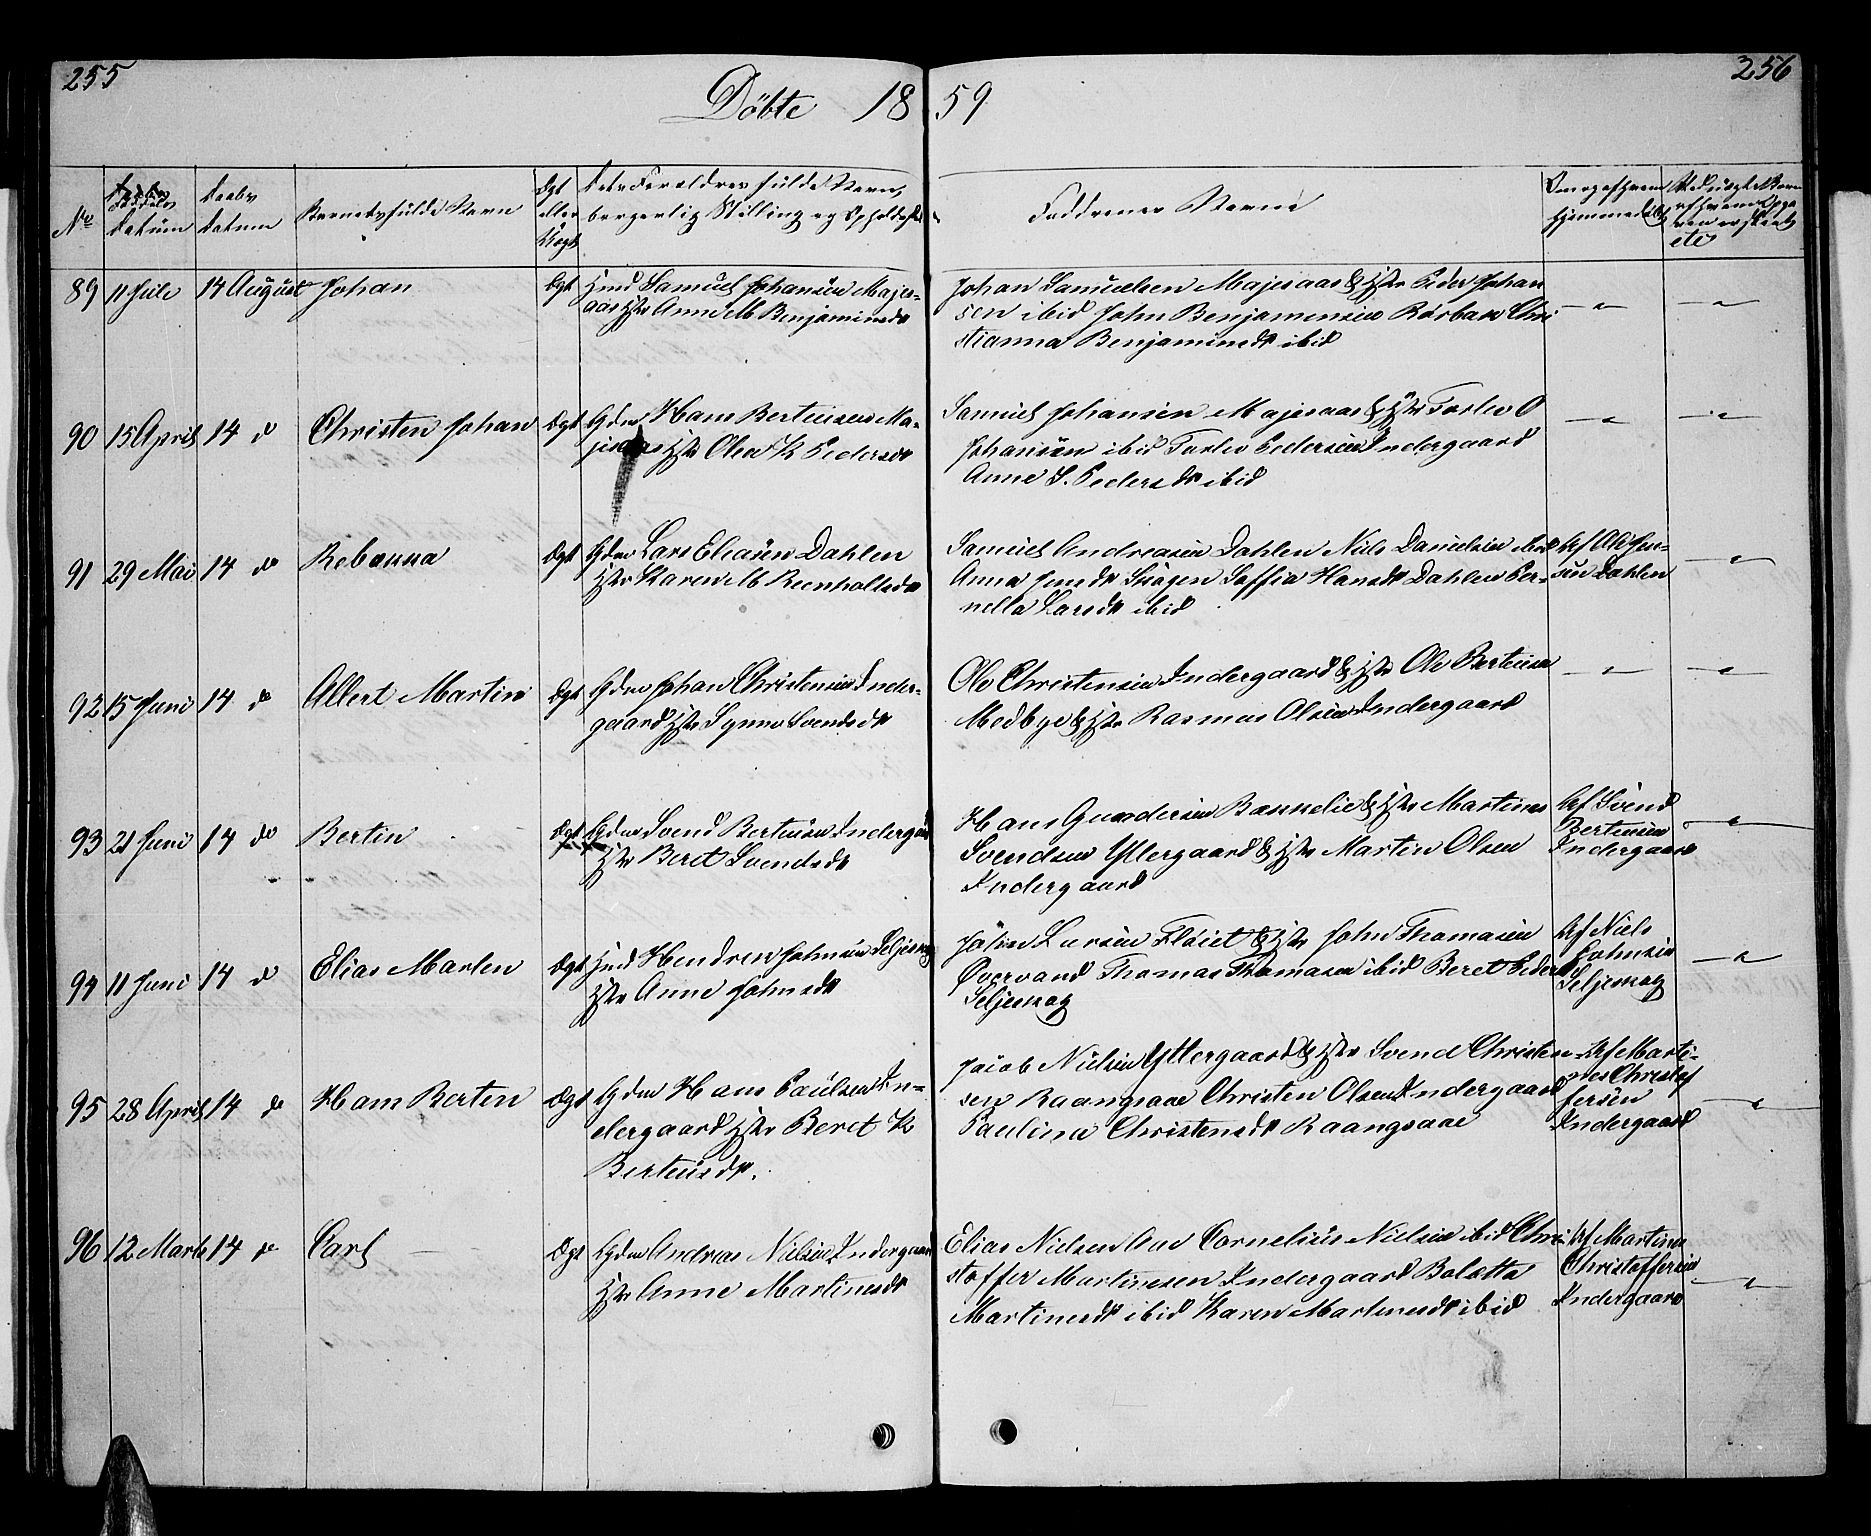 255
256
Döbte 18 59
No
Datum
Daabs Datum
Barnets fulde Navn
Ægt eller Uægt
Forældres fulde Navn,
borgerlig Stilling og Opholdssted
Faddernes Navne
hjemmedøbt
etc
89 11 Juli 14 August Johan Ægt Hmd Samuel Johansen Majes-
aas Hstr Anne M Benjaminsdr
Johan Samuelsen Majesaas & Hstr Peder Johan
sen ibid John Benjaminsen Rörbak Chri
stianna Benjaminsdr ibid
90 15 April 14 d Christen Johan Ægt Gdm Hans Berteusen Ma-
Hstr Olea K Pedersdr
Samuel Johansen Majesaas & Hstr Torlev O
Johansen ibid Torlev Pedersen Indergaard
Anne S. Pedersdr ibid
91 29 Mai 14 do Rebekka Ægt Gdm Lars Eliasen Dahlen
Hstr Karen M Reenholtsdr
Samuel Andreasen Dahlen Nils Danielsen ibid
Anna Skogen Soffia Hansdr Dahlen Per-
nella Larsdr ibid
Af Ole Jen-
sen Dahlen
92 15 Juni 14 do Albert Martin Ægt Gdm Johan Christensen Inder-
gaard Hstr Synne Svendsdr
Ole Christensen Indergaard & Hstr Ole Berteusen
Medbye & Hstr Rasmus Olsen Indergaard
93 21 Juni 14 do Bertin Ægt Gdm Svend Berteusen Indergaard
Hstr Beret Svendsdr
Hans Gundersen Bakkelie & Hstr Martinus
Svendsen Yttergaard & Hstr Martin Olsen
Indergaard
Af Svend
Bertensen
Indergaard
94 11 Juni 14 d Elias Marten Ægt Hmd Hendrik Johnsen Seljeskog
Hstr Anne Johnsdr
Johan Larsen Flöiet & Hstr John Thomasen
Øvervand Thomas Thomasen ibid Beret Pedersdr
Seljeskog
Af Niels
Johnsen
Seljeskog
95 28 April 14 do Hans Berten Ægt Gdm Hans Paulsen In-
dergaard Hstr Beret K
Berteusdr.
Jacob Nielsen Yttergaard & Hstr Svend Christen-
sen Raangsaae Christen Olsen Indergaard
Paulina Christensdr Raangsaae
Af Marti-
nus Christof
fersen
Indergaard
96 12 Marts 14 do Carl Ægt Gdm Andreas Nielsen Indergaard
Hstr Anne Martinusdr
Elias Nielsen Aae Cornelius Nielsen ibid Chri-
stoffer Martinusen Indergaard Bolette
Martinusdr ibid Karen Martinusdr ibid
Af Martinus
Christoffersen
Indergaard